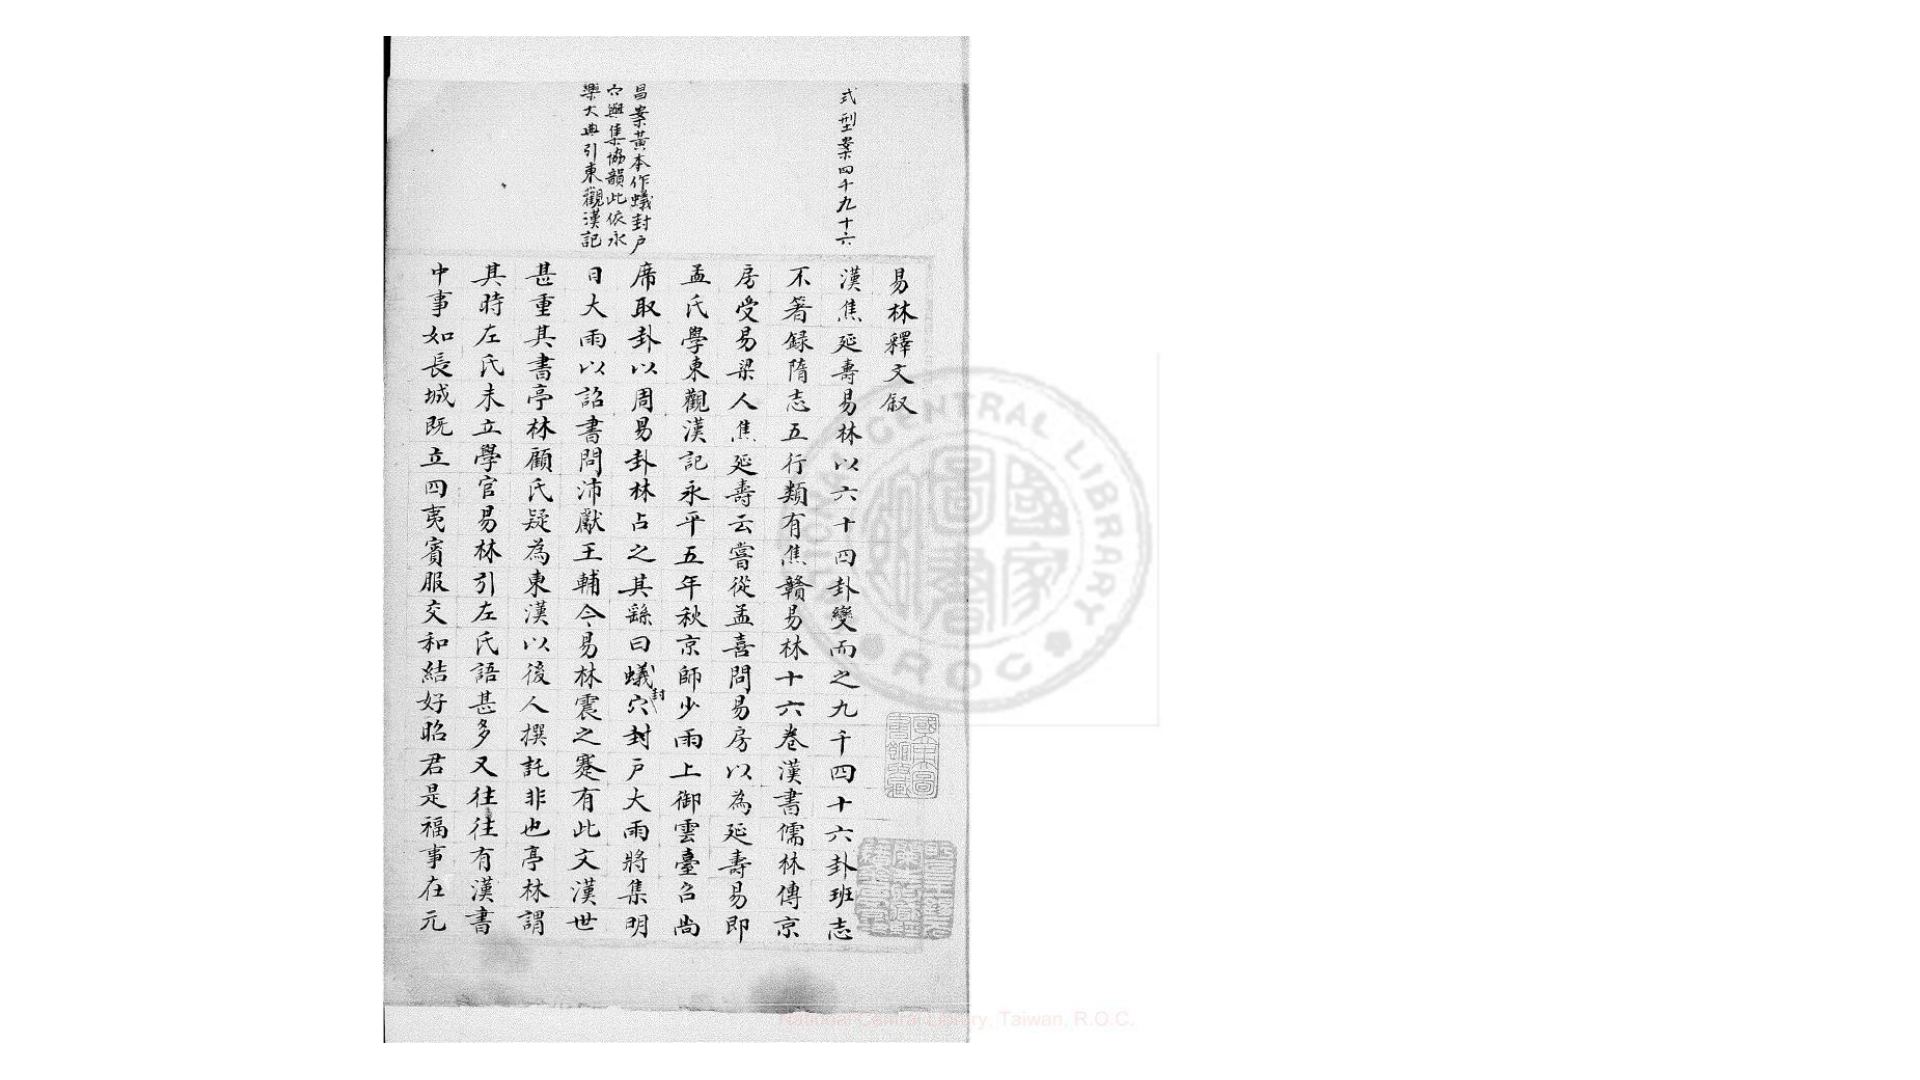 式型案四千九十六
昌案黃本作蟻封戶
穴與集協韻此依永
樂大典引東觀漢記
易林釋文叙
漢焦延壽易林以六十四卦變而之九千四十六卦班志
不著録隋志五行類有焦贛易林十六卷漢書儒林傳京
房受易梁人焦延壽云嘗從孟喜問易房以為延壽易即
孟氏學東觀漢記永平五年秋京師少雨上御雲臺召尚
席取卦以周易卦林占之其繇曰蟻穴封戶大雨將集明
封
日大雨以詔書問沛獻王輔今易林震之蹇有此文漢世
甚重其書亭林顧氏疑為東漢以後人撰託非也亭林謂
其時左氏未立學官易林引左氏語甚多又往往有漢書
中事如長城既立四夷賓服交和結好昭君是福事在元
CENTRAL LIBRARY
ROC
國家圖書
National Central Library, Taiwan, R.O.C.